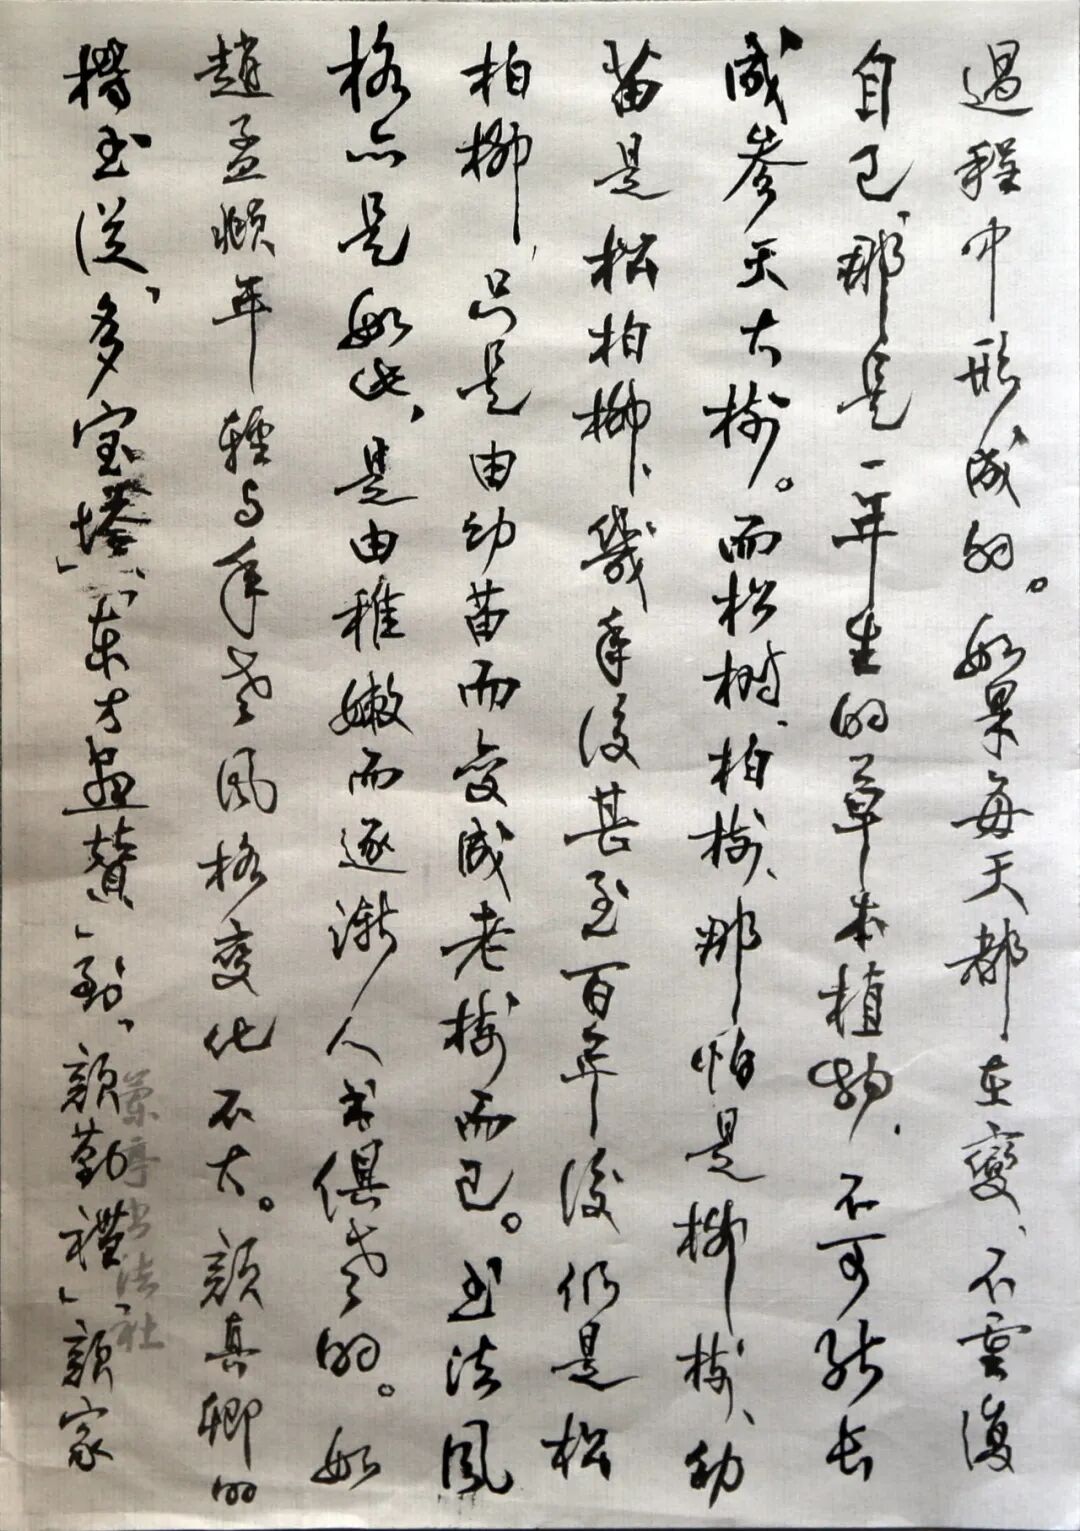 過程中形成的。如果每天都在變、不重復
自己、那是一年生的草本植物，不可能長
成參天大樹。而松樹、柏樹、那怕是柳樹、幼
苗是松柏柳、幾年後甚至百年後仍是松
柏柳，只是由幼苗而變成老樹而已。書法風
格亦是如此，是由稚嫩而逐漸人書俱老的。如
趙孟頫年輕与年老風格變化不大。顏真卿的
書從、多宝塔」「東方畫贊」到、顏勤禮」「顏家
蘭亭書法社